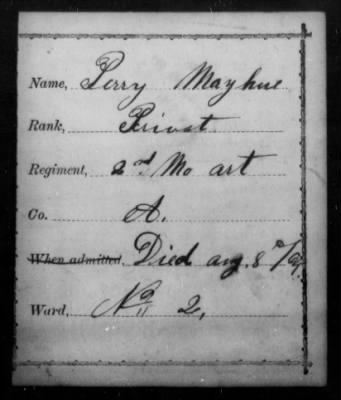 Name, Perry Mayhue
Rank, Privat
Regiment, 2nd Mo art
Co. A.
When admitted. Died aug. 8th
Ward, No 2,